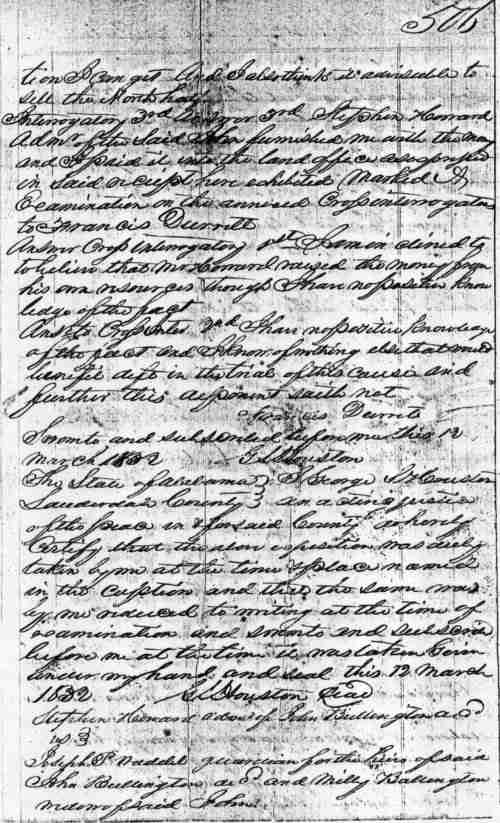 506
tion I can get And I also think it advisable to
sell the North half
Interrogatory 3rd Answer 3rd Stephen Howard
Adm of the said furnished me with the money
and I paid it into the land office as expressed
in said receipt here exhibited Marked A
Examination on the annexed Cross interrogatories
to Francis Durrett
Answer Cross interrogatory 1st I am inclined to
to believe that Mr Howard raised the money from
his own resources though I have no positive know
ledge of the fact
Ans to Cross Inter 2nd I have no positive knowledge
of the fact and I know of nothing else that would
benefit deft in the trial of this cause and
further this deponent saith not
Francis Durrett
Sworn to and subscribed before me this 12
March 1832 G S Houston
The State of Alabama } I George S Houston
Lauderdale County } an acting justice
of the peace in & for said County do hereby
Certify that the above deposition was duly
taken by me at the time & place named
in the caption and that the same was
by me reduced to writing at the time of
examination and sworn to and subscribed
before me at the time it was taken Given
under my hand and seal this 12 March
1832 G S Houston Seal
Stephen Howard admr of John Bullington decd
vs }
Joseph P Waddel guardian for the heirs of said
John Bullington decd and Milly Bullington
widow of said John